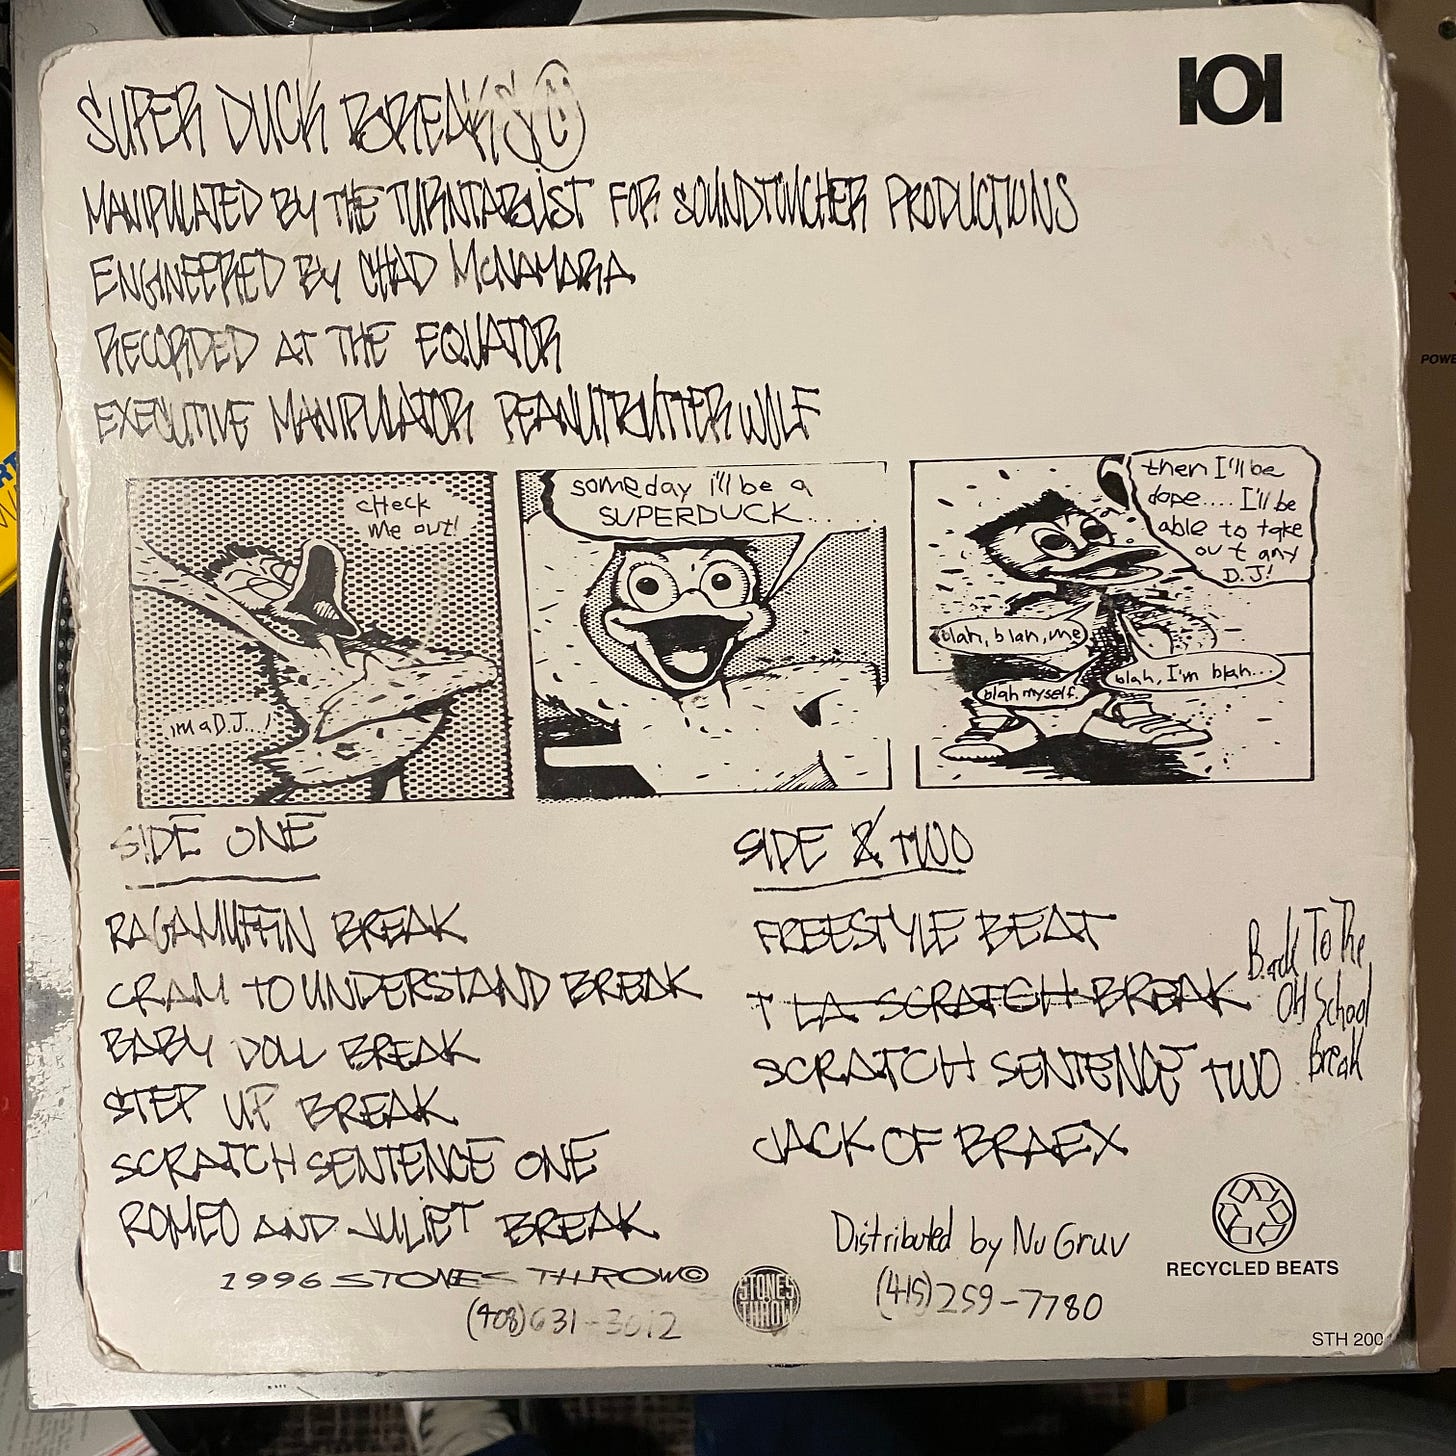 SUPER DUCK BREAKS ©
101
MANIPULATED BY THE TURNTABLIST FOR SOUNDTOUCHER PRODUCTIONS
ENGINEERED BY CHAD McNAMARA
RECORDED AT THE EQUATOR
EXECUTIVE MANIPULATOR PEANUTBUTTERWOLF
cHeck
me out!
im a D.J....!
someday i'll be a
SUPERDUCK...
then I'll be
dope.... I'll be
able to take
out any
D.J!
blah, blah, me
blah myself.
blah, I'm blah...
SIDE ONE
RAGAMUFFIN BREAK
CRAM TO UNDERSTAND BREAK
BABY DOLL BREAK
STEP UP BREAK
SCRATCH SENTENCE ONE
ROMEO AND JULIET BREAK
SIDE & TWO
FREESTYLE BEAT
T LA SCRATCH BREAK
Back To The
Old School
Break
SCRATCH SENTENCE TWO
JACK OF BRAEX
Distributed by Nu Gruv
(415)259-7780
RECYCLED BEATS
1996 STONES THROW©
(408)631-3012
STONES
THROW
STH 200
POWE